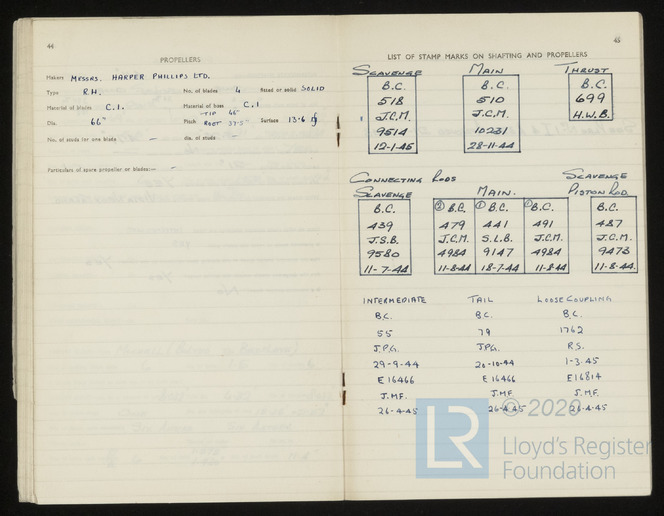 44
PROPELLERS
Makers MESSRS. HARPER PHILLIPS LTD.
Type R.H. No. of blades 4 Fitted or solid SOLID
Material of blades C.I. Material of boss C.I
Dia. 66" Pitch TIP 46" ROOT 37.5" Surface 13.6
No. of studs for one blade — dia. of studs —
Particulars of spare propeller or blades:— —
45
LIST OF STAMP MARKS ON SHAFTING AND PROPELLERS
SCAVENGE MAIN THRUST
B.C. B.C. B.C.
518 510 699
J.C.M. J.C.M. H.W.B.
9514 10231
12-1-45 28-11-44
CONNECTING RODS SCAVENGE
SCAVENGE MAIN. PISTON ROD.
B.C. ② B.C. ① B.C. ① B.C. B.C.
439 479 441 491 487
J.S.B. J.C.M. S.L.B. J.C.M. J.C.M.
9580 4984 9147 4984 9473
11-7-44 11-8-44 18-7-44 11-8-44 11-8-44.
INTERMEDIATE TAIL LOOSE COUPLING
B.C. B.C. B.C.
55 79 1762
J.P.G. J.P.G. R.S.
29-9-44 20-10-44 1-3-45
E 16466 E 16466 E16814
J.MF. J.MF. J.MF.
26-4-45 26-4-45 26-4-45
LR © 2020
Lloyd's Register
Foundation